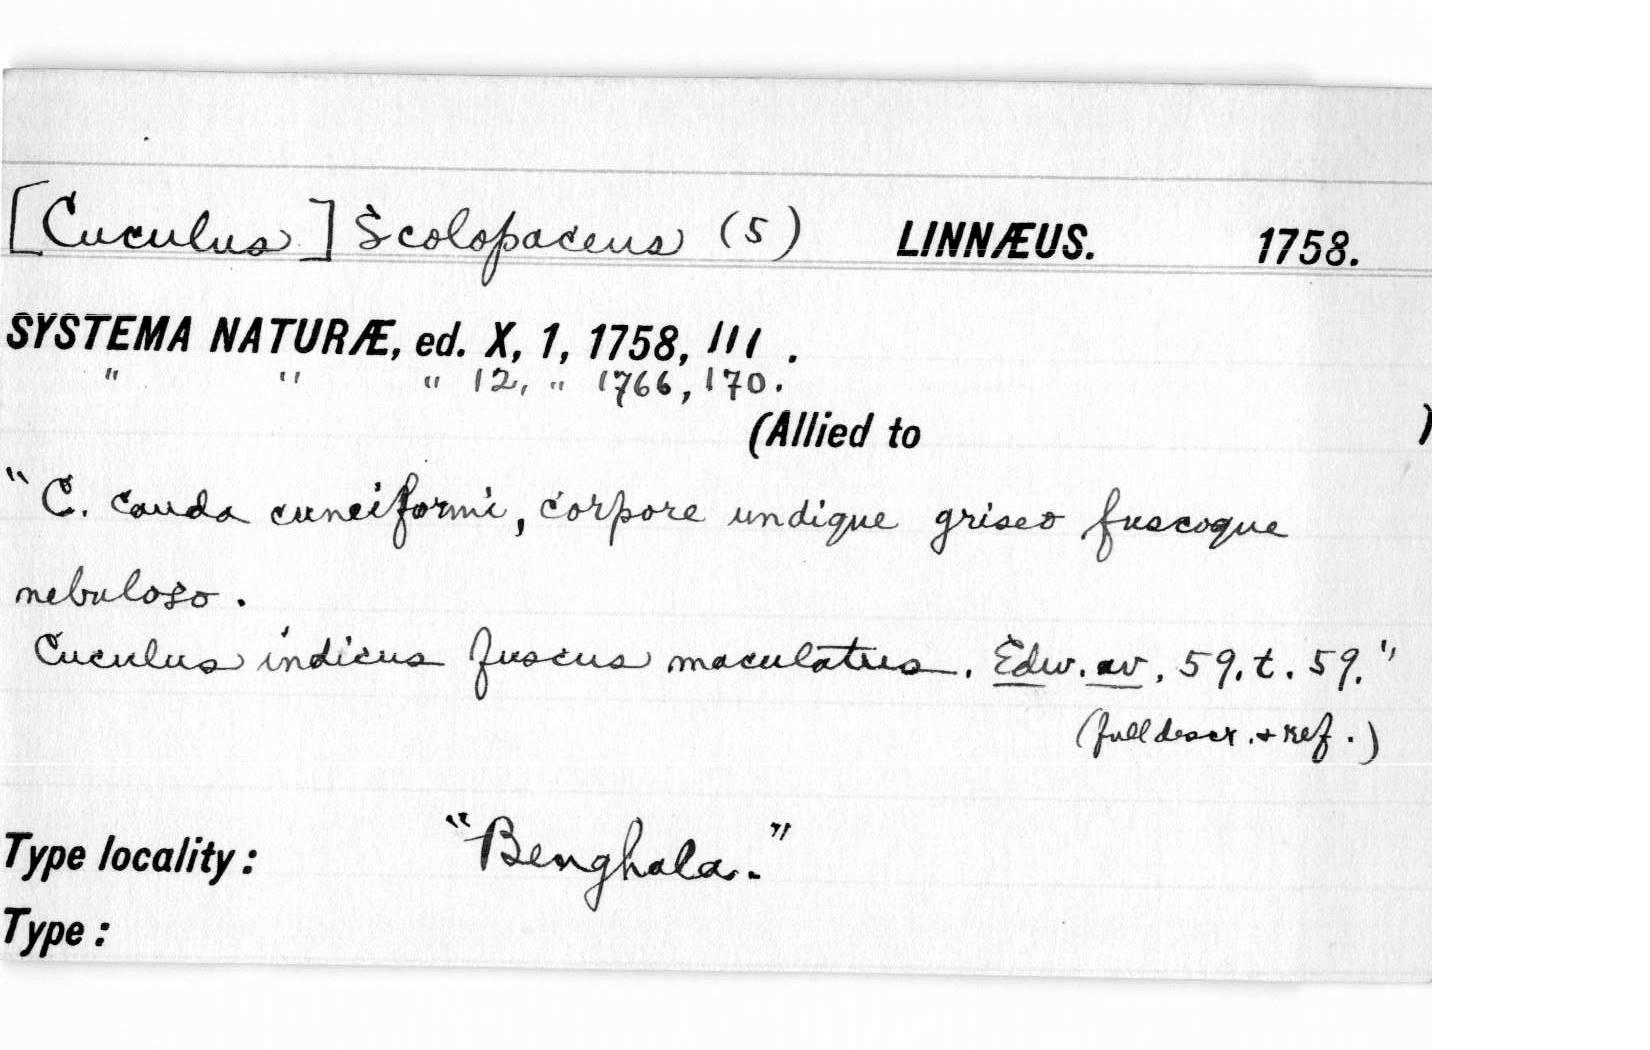 [Cuculus] Scolopaceus (5) LINNÆUS. 1758.
SYSTEMA NATURÆ, ed. X, 1, 1758, 111 .
" " " 12, " 1766, 170.
(Allied to )
"C. cauda cuneiformi, corpore undique griseo fuscoque
nebuloso.
Cuculus indicus fuscus maculatus. Edw. av, 59. t. 59."
(full descr. & ref.)
Type locality: "Benghala."
Type: